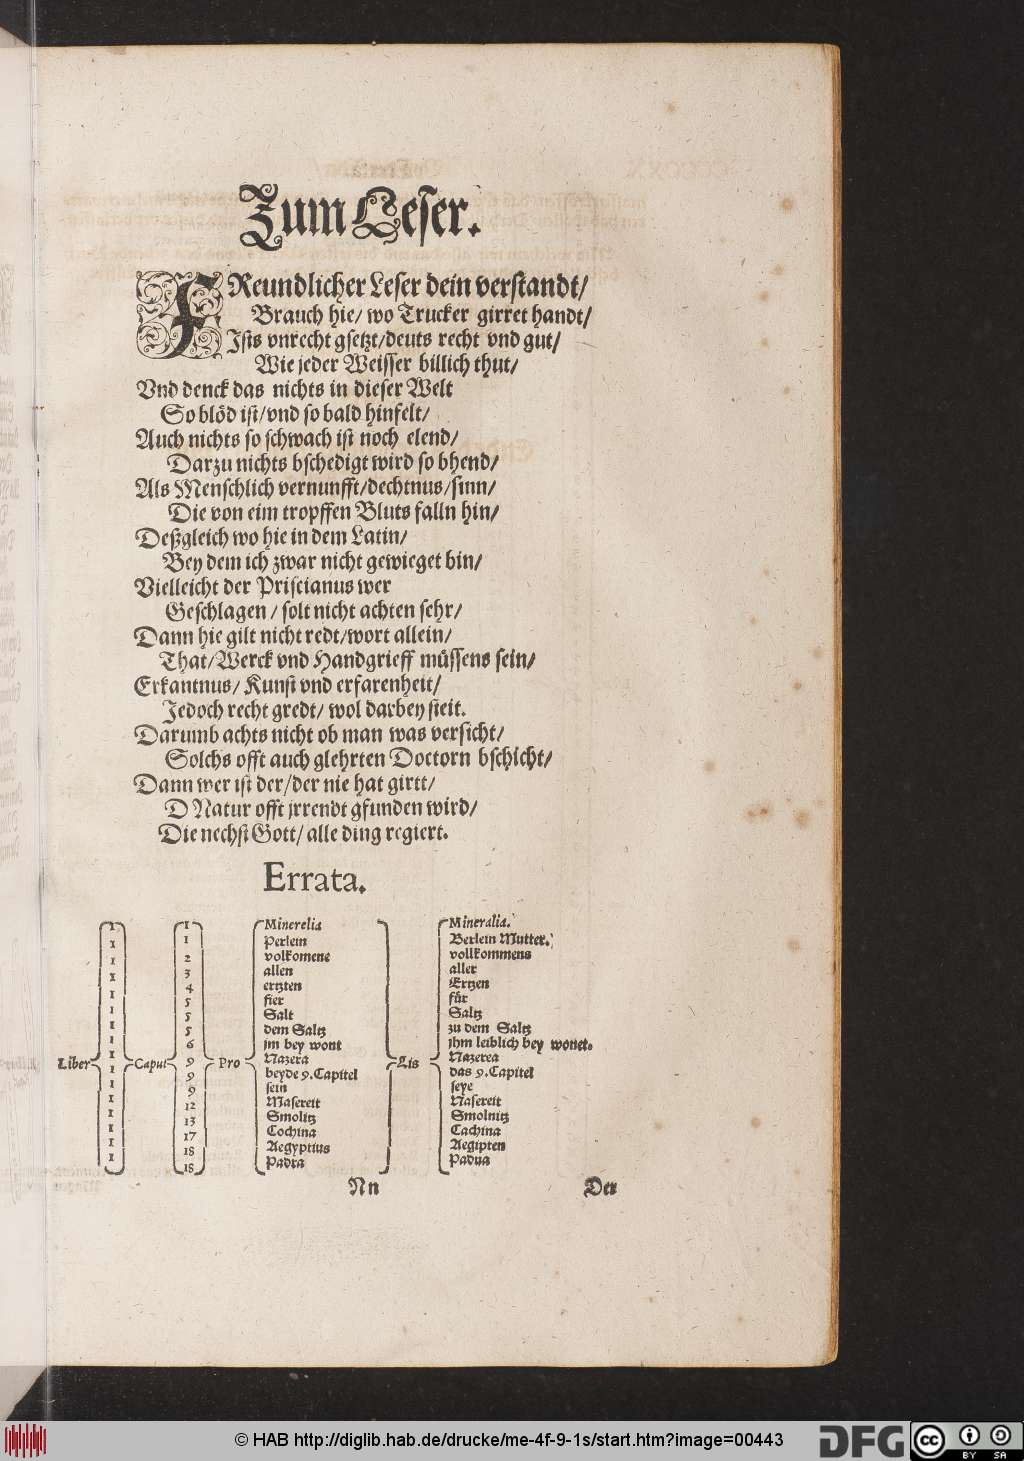 Zum Leser.
FReundlicher Leser dein verstandt/
Brauch hie/ wo Trucker girret handt/
Ists vnrecht gsetzt/deuts recht vnd gut/
Wie jeder Weisser billich thut/
Vnd denck das nichts in dieser Welt
So blöd ist/vnd so bald hinfelt/
Auch nichts so schwach ist noch elend/
Darzu nichts bschedigt wird so bhend/
Als Menschlich vernunfft/dechtnus/sinn/
Die von eim tropffen Bluts falln hin/
Deßgleich wo hie in dem Latin/
Bey dem ich zwar nicht gewieget bin/
Vielleicht der Priscianus wer
Geschlagen / solt nicht achten sehr/
Dann hie gilt nicht redt/wort allein/
That/Werck vnd Handgrieff müssens sein/
Erkantnus/ Kunst vnd erfarenheit/
Jedoch recht gredt/ wol darbey steit.
Darumb achts nicht ob man was versicht/
Solchs offt auch glehrten Doctorn bschicht/
Dann wer ist der/der nie hat girtt/
D Natur offt jrrendt gfunden wird/
Die nechst Gott/ alle ding regiert.
Errata.
1 1 Minerelia Mineralia.
1 1 Perlein Berlein Mutter.
1 2 volkomene vollkommens
1 3 allen aller
1 4 ertzten Ertzen
1 5 fier für
1 5 Salt Saltz
1 5 dem Saltz zu dem Saltz
1 6 jm bey wont jhm leiblich bey wonet.
Liber 1 Caput 9 Pro Nazera Lis Nazerea
1 9 beyde 9. Capitel das 9. Capitel
1 9 sein seye
1 12 Masereit Nasereit
1 13 Smolitz Smolnitz
1 17 Cochina Cachina
1 18 Aegyptius Aegipten
18 Padra Padua
Nn Der
© HAB http://diglib.hab.de/drucke/me-4f-9-1s/start.htm?image=00443
DFG
cc BY SA